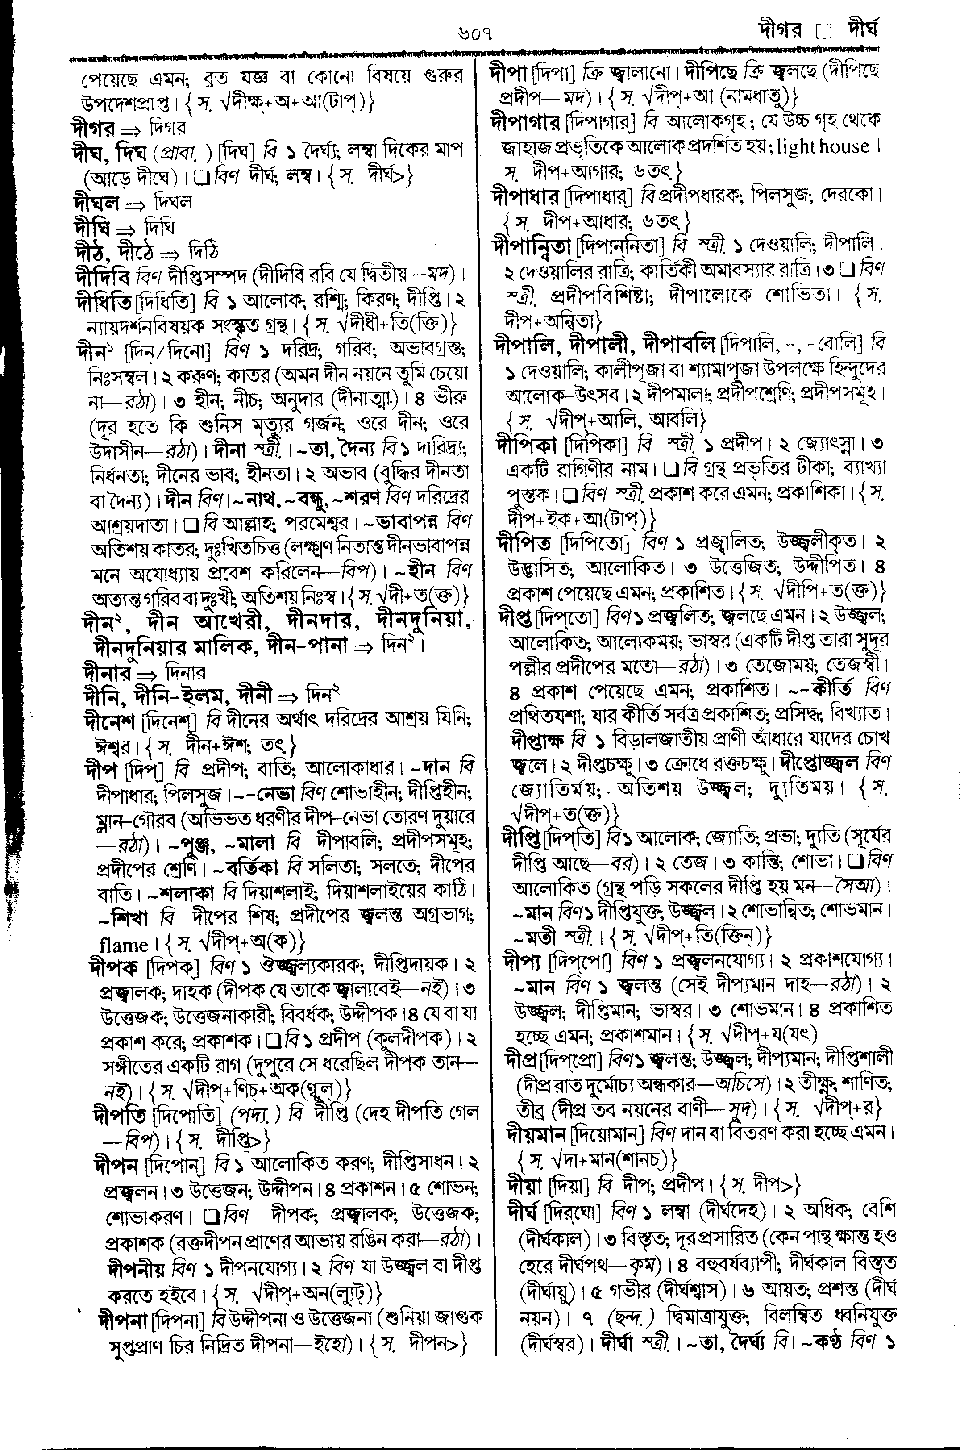 ৬০৭
দীগর □ দীর্ঘ
পেয়েছে এমন; ব্রত যজ্ঞ বা কোনো বিষয়ে গুরুর
উপদেশপ্রাপ্ত। {স. √দীক্ষ্+অ+আ(টাপ্)}
দীগর ⇒ দিগর
দীঘ, দিঘ (প্রাবা.) [দিঘ] বি ১ দৈর্ঘ্য; লম্বা দিকের মাপ
(আড়ে দীঘে)। □ বিণ দীর্ঘ; লম্ব। {স. দীর্ঘ>}
দীঘল ⇒ দিঘল
দীঘি ⇒ দিঘি
দীঠ, দীঠে ⇒ দিঠি
দীদিবি বিণ দীপ্তিসম্পদ (দীদিবি রবি যে দ্বিতীয়—মদ)।
দীধিতি [দিধিতি] বি ১ আলোক; রশ্মি; কিরণ; দীপ্তি। ২
ন্যায়দর্শনবিষয়ক সংস্কৃত গ্রন্থ। {স. √দীধী+তি(ক্তি)}
দীন১ [দিন/দিনো] বিণ ১ দরিদ্র; গরিব; অভাবগ্রস্ত;
নিঃসম্বল। ২ করুণ; কাতর (অমন দীন নয়নে তুমি চেয়ো
না—রঠা)। ৩ হীন; নীচ; অনুদার (দীনাত্মা)। ৪ ভীরু
(দূর হতে কি শুনিস মৃত্যুর গর্জন; ওরে দীন; ওরে
উদাসীন—রঠা)। দীনা স্ত্রী.। ~তা, দৈন্য বি ১ দারিদ্র্য;
নির্ধনতা; দীনের ভাব; হীনতা। ২ অভাব (বুদ্ধির দীনতা
বা দৈন্য)। দীন বিণ। ~নাথ, ~বন্ধু, ~শরণ বিণ দরিদ্রের
আশ্রয়দাতা। □ বি আল্লাহ; পরমেশ্বর। ~ভাবাপন্ন বিণ
অতিশয় কাতর; দুঃখিতচিত্ত (লক্ষ্মণ নিতান্ত দীনভাবাপন্ন
মনে অযোধ্যায় প্রবেশ করিলেন—বিপ)। ~হীন বিণ
অত্যন্ত গরিব বা দুঃখী; অতিশয় নিঃস্ব। {স. √দী+ত(ক্ত)}
দীন২, দীন আখেরী, দীনদার, দীনদুনিয়া,
দীনদুনিয়ার মালিক, দীন-পানা ⇒ দিন২।
দীনার ⇒ দিনার
দীনি, দীনি-ইলম, দীনী ⇒ দিন২
দীনেশ [দিনেশ্] বি দীনের অর্থাৎ দরিদ্রের আশ্রয় যিনি;
ঈশ্বর। {স. দীন+ঈশ; তৎ}
দীপ [দিপ্] বি প্রদীপ; বাতি; আলোকাধার। ~দান বি
দীপাধার; পিলসুজ। ~-নেভা বিণ শোভাহীন; দীপ্তিহীন;
ম্লান-গৌরব (অভিভত ধরণীর দীপ-নেভা তোরণ দুয়ারে
—রঠা)। ~পুঞ্জ, ~মালা বি দীপাবলি; প্রদীপসমূহ;
প্রদীপের শ্রেণি। ~বর্তিকা বি সলিতা; সলতে; দীপের
বাতি। ~শলাকা বি দিয়াশলাই; দিয়াশলাইয়ের কাঠি।
~শিখা বি দীপের শিষ; প্রদীপের জ্বলন্ত অগ্রভাগ;
flame। {স. √দীপ্+অ(ক)}
দীপক [দিপক্] বিণ ১ ঔজ্জ্বল্যকারক; দীপ্তিদায়ক। ২
প্রজ্বালক; দাহক (দীপক যে তাকে জ্বালাবেই—নই)। ৩
উত্তেজক; উত্তেজনাকারী; বিবর্ধক; উদ্দীপক। ৪ যে বা যা
প্রকাশ করে; প্রকাশক। □ বি ১ প্রদীপ (কুলদীপক)। ২
সঙ্গীতের একটি রাগ (দুপুরে সে ধরেছিল দীপক তান—
নই)। {স. √দীপ্+ণিচ্+অক(ণ্বুল্)}
দীপতি [দিপোতি] (পদ্য.) বি দীপ্তি (দেহ দীপতি গেল
—বিপ)। {স. দীপ্তি>}
দীপন [দিপোন্] বি ১ আলোকিত করণ; দীপ্তিসাধন। ২
প্রজ্বলন। ৩ উত্তেজন; উদ্দীপন। ৪ প্রকাশন। ৫ শোভন;
শোভাকরণ। □ বিণ দীপক; প্রজ্বালক; উত্তেজক;
প্রকাশক (রক্তদীপন প্রাণের আভায় রঙিন করা—রঠা)।
দীপনীয় বিণ ১ দীপনযোগ্য। ২ বিণ যা উজ্জ্বল বা দীপ্ত
করতে হইবে। {স. √দীপ্+অন(ল্যুট্)}
দীপনা [দিপনা] বি উদ্দীপনা ও উত্তেজনা (শুনিয়া জাগুক
সুপ্তপ্রাণ চির নিদ্রিত দীপনা—ইহো)। {স. দীপন>}
দীপা [দিপা] ক্রি জ্বালানো। দীপিছে ক্রি জ্বলছে (দীপিছে
প্রদীপ—মদ)। {স. √দীপ্+আ (নামধাতু)}
দীপাগার [দিপাগার] বি আলোকগৃহ; যে উচ্চ গৃহ থেকে
জাহাজ প্রভৃতিকে আলোক প্রদর্শিত হয়; light house।
স. দীপ+আগার; ৬তৎ}
দীপাধার [দিপাধার্] বি প্রদীপধারক; পিলসুজ, দেরকো।
{স. দীপ+আধার; ৬তৎ}
দীপান্বিতা [দিপান্‌নিতা] বি স্ত্রী. ১ দেওয়ালি; দীপালি.
২ দেওয়ালির রাত্রি; কার্তিকী অমাবস্যার রাত্রি। ৩ □ বিণ
স্ত্রী. প্রদীপবিশিষ্টা; দীপালোকে শোভিতা। {স.
দীপ+অন্বিতা}
দীপালি, দীপালী, দীপাবলি [দিপালি, -, -বোলি] বি
১ দেওয়ালি; কালীপূজা বা শ্যামাপূজা উপলক্ষে হিন্দুদের
আলোক-উৎসব। ২ দীপমালা; প্রদীপশ্রেণি; প্রদীপসমূহ।
{স. √দীপ্+আলি, আবলি}
দীপিকা [দিপিকা] বি স্ত্রী ১ প্রদীপ। ২ জ্যোৎস্না। ৩
একটি রাগিণীর নাম। □ বি গ্রন্থ প্রভৃতির টীকা; ব্যাখ্যা
পুস্তক। □ বিণ স্ত্রী. প্রকাশ করে এমন; প্রকাশিকা। {স.
দীপ+ইক+আ(টাপ্)}
দীপিত [দিপিতো] বিণ ১ প্রজ্বলিত; উজ্জ্বলীকৃত। ২
উদ্ভাসিত; আলোকিত। ৩ উত্তেজিত; উদ্দীপিত। ৪
প্রকাশ পেয়েছে এমন; প্রকাশিত। {স. √দীপি+ত(ক্ত)}
দীপ্ত [দিপ্‌তো] বিণ ১ প্রজ্বলিত; জ্বলছে এমন। ২ উজ্জ্বল;
আলোকিত; আলোকময়; ভাস্বর (একটি দীপ্ত তারা সুদূর
পল্লীর প্রদীপের মতো—রঠা)। ৩ তেজোময়; তেজস্বী।
৪ প্রকাশ পেয়েছে এমন; প্রকাশিত। ~-কীর্তি বিণ
প্রথিতযশা; যার কীর্তি সর্বত্র প্রকাশিত; প্রসিদ্ধ; বিখ্যাত।
দীপ্তাক্ষ বি ১ বিড়ালজাতীয় প্রাণী আঁধারে যাদের চোখ
জ্বলে। ২ দীপ্তচক্ষু। ৩ ক্রোধে রক্তচক্ষু। দীপ্তোজ্জ্বল বিণ
জ্যোতির্ময়; অতিশয় উজ্জ্বল; দ্যুতিময়। {স.
√দীপ্+ত(ক্ত)}
দীপ্তি [দিপ্‌তি] বি ১ আলোক; জ্যোতি; প্রভা; দ্যুতি (সূর্যের
দীপ্তি আছে—বর)। ২ তেজ। ৩ কান্তি; শোভা। □ বিণ
আলোকিত (গ্রন্থ পড়ি সকলের দীপ্তি হয় মন—সৈআ)।
~মান বিণ ১ দীপ্তিযুক্ত; উজ্জ্বল। ২ শোভান্বিত; শোভমান।
~মতী স্ত্রী.। {স. √দীপ্+তি(ক্তিন্)}
দীপ্য [দিপ্‌পো] বিণ ১ প্রজ্বলনযোগ্য। ২ প্রকাশযোগ্য।
~মান বিণ ১ জ্বলন্ত (সেই দীপ্যমান দাহ—রঠা)। ২
উজ্জ্বল; দীপ্তিমান; ভাস্বর। ৩ শোভমান। ৪ প্রকাশিত
হচ্ছে এমন; প্রকাশমান। {স. √দীপ্+য(যৎ)}
দীপ্র [দিপ্‌প্রো] বিণ ১ জ্বলন্ত; উজ্জ্বল; দীপ্যমান; দীপ্তিশালী
(দীপ্র রাত দুর্মোচ্য অন্ধকার—অচিসে)। ২ তীক্ষ্ণ; শাণিত;
তীব্র (দীপ্র তব নয়নের বাণী—সুদ)। {স. √দীপ্+র}
দীয়মান [দিয়োমান্] বিণ দান বা বিতরণ করা হচ্ছে এমন।
{স. √দা+মান(শানচ্)}
দীয়া [দিয়া] বি দীপ; প্রদীপ। {স. দীপ>}
দীর্ঘ [দির্‌ঘো] বিণ ১ লম্বা (দীর্ঘদেহ)। ২ অধিক; বেশি
(দীর্ঘকাল)। ৩ বিস্তৃত; দূরপ্রসারিত (কেন পান্থ ক্ষান্ত হও
হেরে দীর্ঘপথ—কৃম)। ৪ বহুবর্ষব্যাপী; দীর্ঘকাল বিস্তৃত
(দীর্ঘায়ু)। ৫ গভীর (দীর্ঘশ্বাস)। ৬ আয়ত; প্রশস্ত (দীর্ঘ
নয়ন)। ৭ (ছন্দ.) দ্বিমাত্রাযুক্ত; বিলম্বিত ধ্বনিযুক্ত
(দীর্ঘস্বর)। দীর্ঘা স্ত্রী.। ~তা, দৈর্ঘ্য বি। ~কণ্ঠ বিণ ১